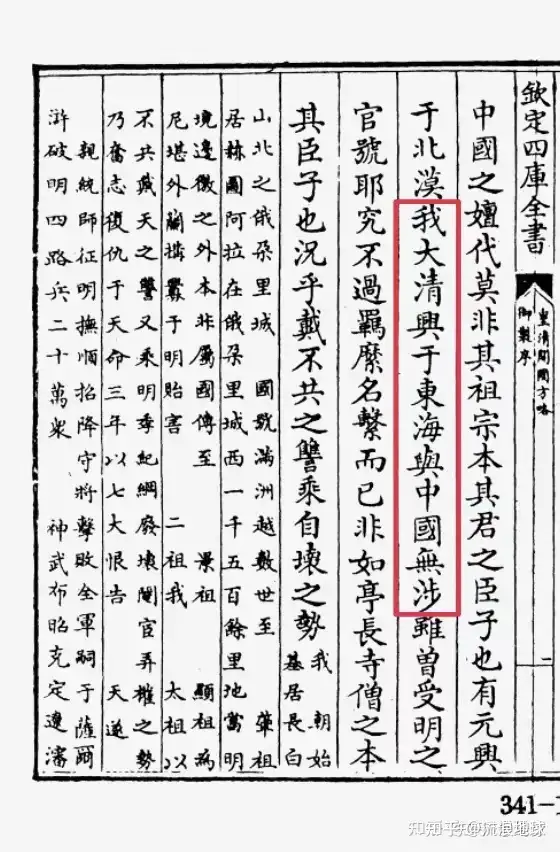 欽定四庫全書
皇清開國方略
御製序
二
中國之嬗代莫非其祖宗本其君之臣子也有元興
于北漠我大清興于東海與中國無涉雖曾受明之
官號耶究不過羈縻名繫而已非如亭長寺僧之本
其臣子也況乎戴不共之讐乘自壞之勢
我朝始
基居長白
山北之俄朶里城 國號滿洲越數世至 肇祖
居赫圖阿拉在俄朶里城西一千五百餘里地當明
境邊徼之外本非屬國傳至 景祖 顯祖為
尼堪外蘭搆釁于明貽害 二祖我 太祖以
不共戴天之讐又乘明季紀綱廢壞閹官弄權之勢
乃奮志復仇于天命三年以七大恨告 天遂
親統師征明撫順招降守將擊敗全軍嗣于薩爾
滸破明四路兵二十萬衆 神武布昭克定遼瀋
341-
知乎 @流浪地球